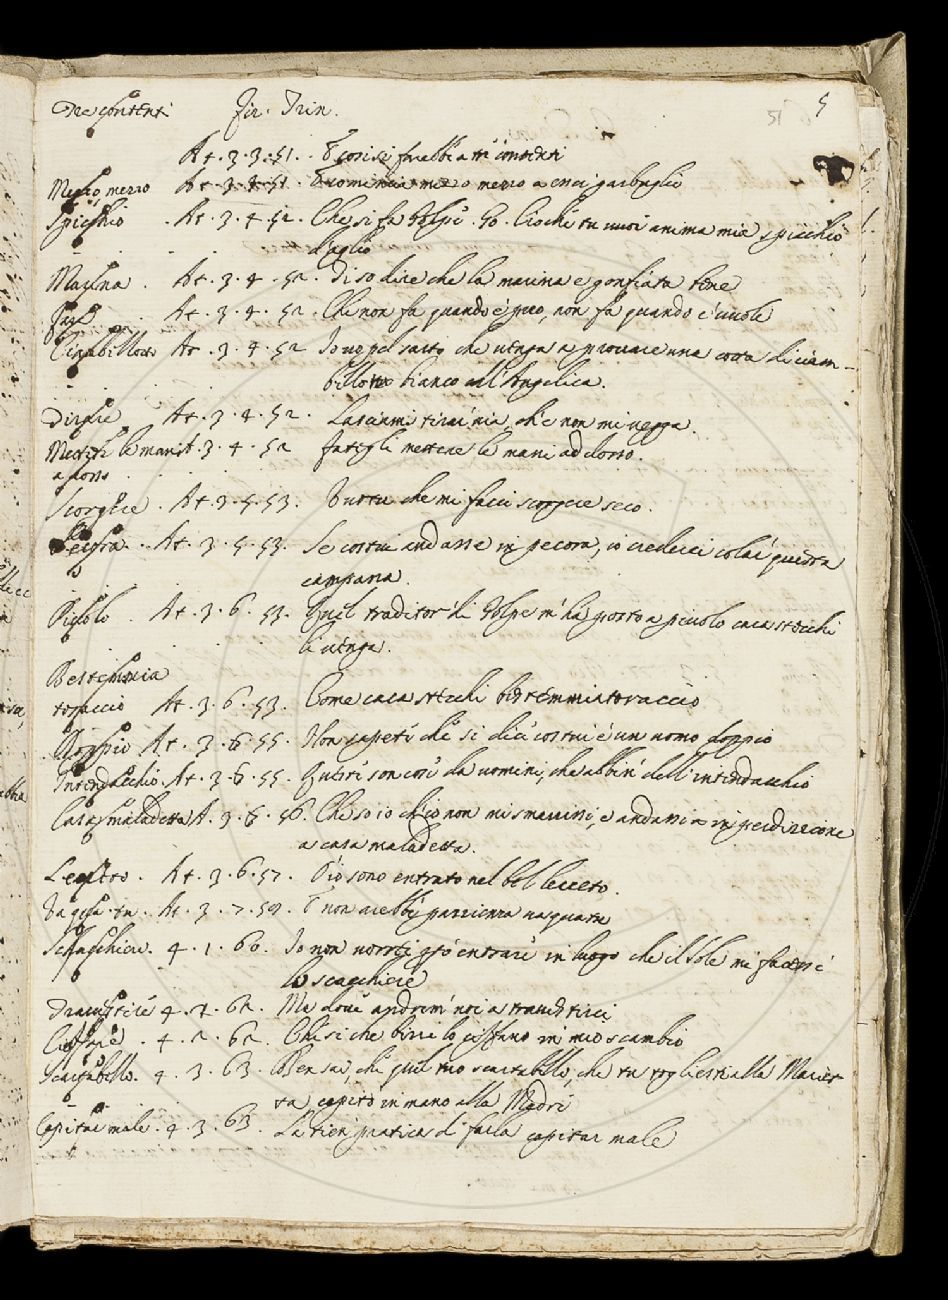 Fir. Trin. 5
51
At. 3. 3. 51. E così si farebbiatti contenti
Meglio mezzo At. 3. 4. 51. mezzo a enci garbuglio
Spicchio . At. 3. 4. 52. Che si fa Volpe. Vo. Ciochè tu vuoi anima mia spicchio
d'aglio
Macina . At. 3. 4. 52. Di so dire che la macina e gonfiata bene
Fare . At. 3. 4. 52. Chi non fa quando è puo, non fa quando è vuole
Ciambellotto At. 3. 4. 52 Io vo pel sarto che venga a provare una cotta di ciam-
bellotto bianco all'Angelica.
Dirsie At. 3. 4. 52. Lasciami tirar via, che non mi vegga.
Mettere le mani At. 3. 4. 52 fategli mettere le mani addosso.
adosso
Scorgere . At. 3. 5. 53. Tu vuoi che mi facci scorgere seco.
Pecora . At. 3. 5. 53. Se costui andasse in pecora, io crederei colai questa
campana.
Piuolo . At. 3. 6. 53. Quel traditor di Volpe m'ha posto a piuolo cacastecchi
li venga.
Bestemmia
toraccio At. 3. 6. 53. Come cacastecchi bestemmiatoraccio
Doppio At. 3. 6. 55. Non sapete che si dice costui è un uomo doppio
Intendacchio. At. 3. 6. 55. Questi son così da uomini, che abbin' dell'intendacchio
Casa maladetta A. 3. 6. 56. Che so io ch'io non mi smarrissi, e andassi in perdizione
a casa maladetta.
Lecceto . At. 3. 6. 57. O io sono entrato nel bel lecceto.
Vaquatu. At. 3. 7. 59. E non avebbe pazzienza vaquatu
Scacchiere. 4. 1. 60. Io non vorrei però entrare in luogo che il Sole mi facessi
lo scacchiere
Travestire 4. 2. 62. Ma dove andrem' noi a travestirci
Ciuffare . 4. 2. 62. Chi si che birri lo ciuffano in mio scambio
Scartabello. 4. 3. 63. Ben sai, che quel tuo scartabello, che tu togliesti alla Mariet-
ta capitò in mano alla Madre
Capitar male. 4. 3. 63. La tien pratica di farla capitar male